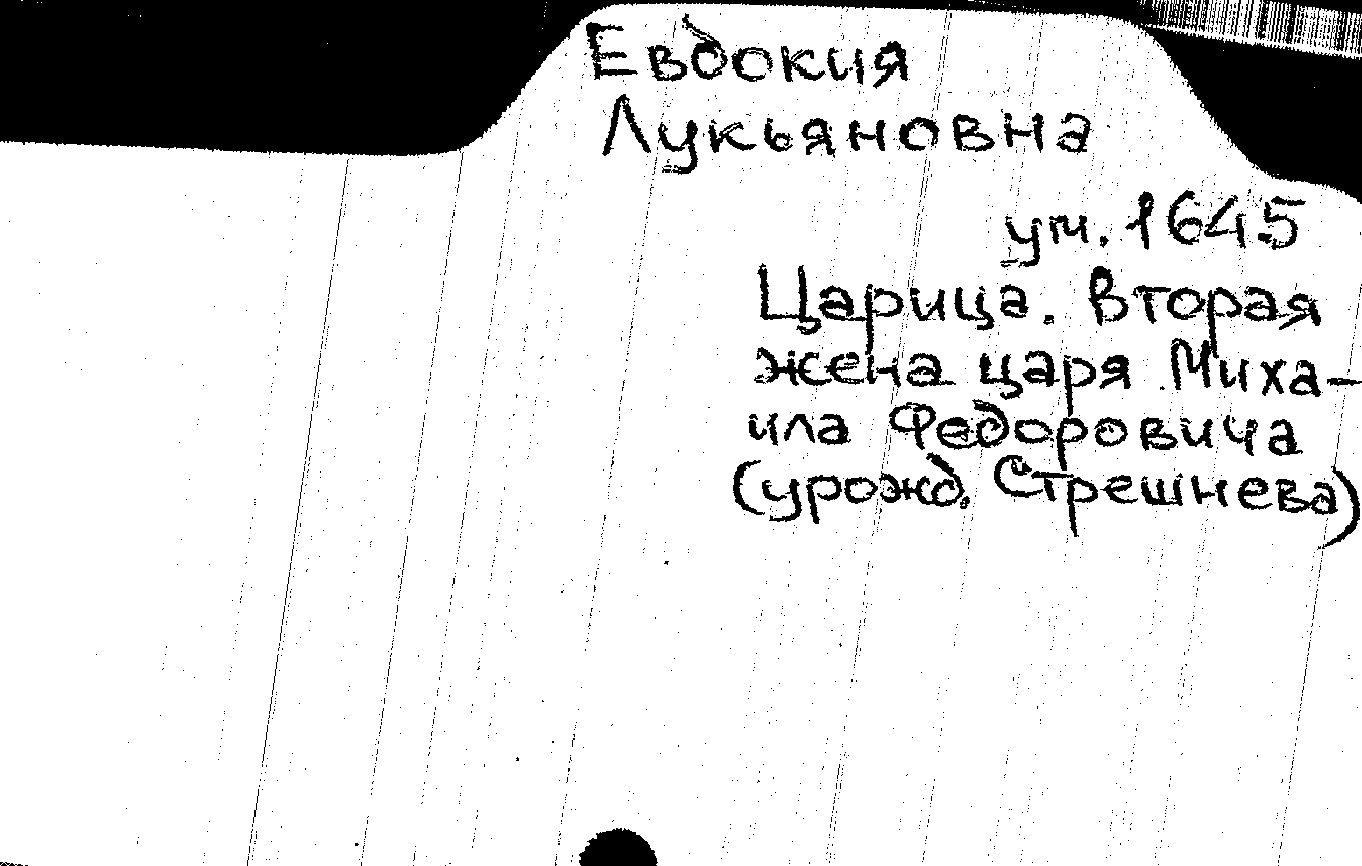 Евдокия
Лукьяновна
ум. 1645
Царица. Вторая
жена царя Миха-
ила Федоровича
(урожд. Стрешнева)